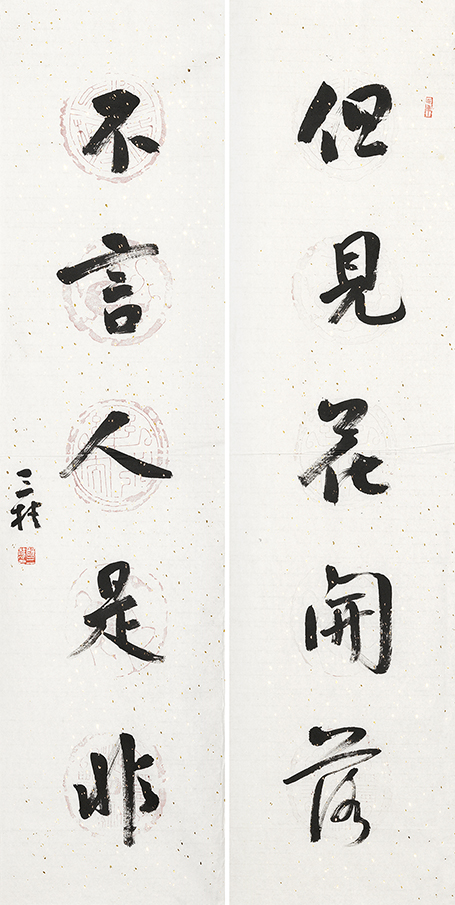 但見花開落
不言人是非